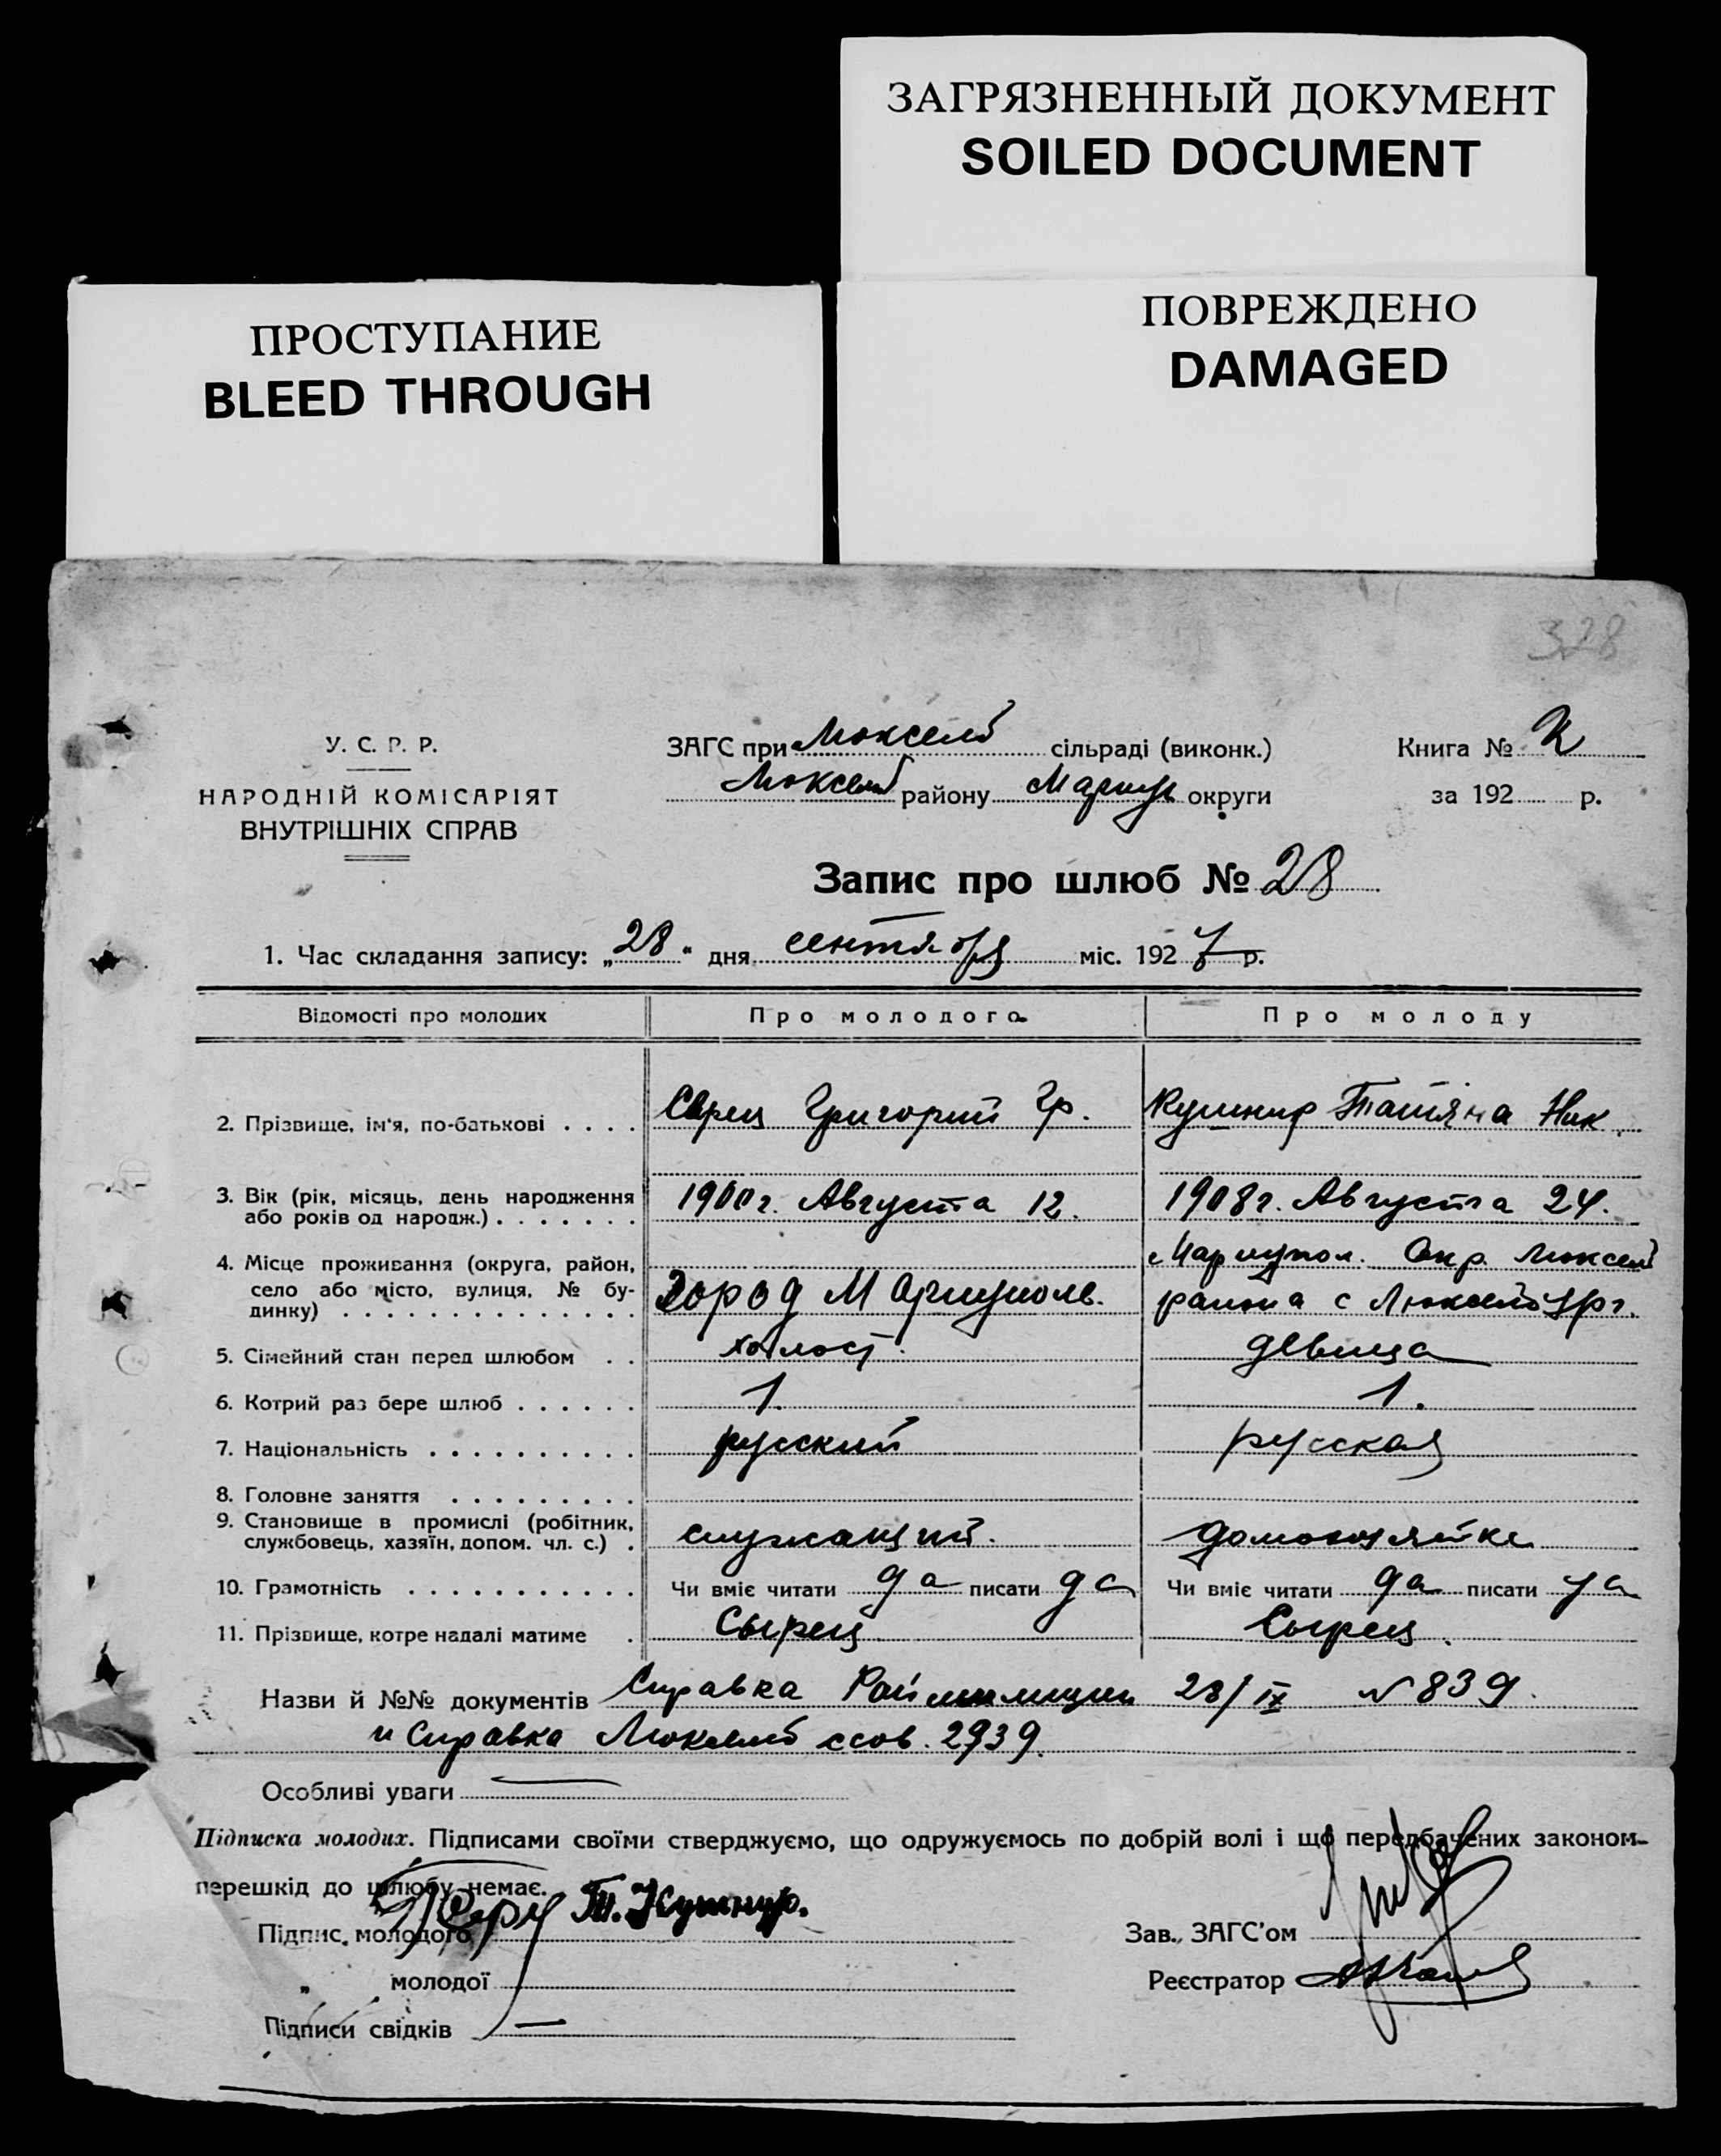 ЗАГРЯЗНЕННЫЙ ДОКУМЕНТ
SOILED DOCUMENT
ПРОСТУПАНИЕ
BLEED THROUGH
ПОВРЕЖДЕНО
DAMAGED
328
У. С. Р. Р.
НАРОДНІЙ КОМІСАРІЯТ
ВНУТРІШНІХ СПРАВ
ЗАГС при Люксемб сільраді (виконк.)
Люксемб району Мариуп округи
Книга №
за 192 р.
Запис про шлюб № 28
1. Час складання запису: „28“ дня сентября міс. 1927 р.
Відомості про молодих Про молодого Про молоду
2. Прізвище, ім'я, по-батькові . . . . Григорий Гр. Кушнир Татяна Ник.
3. Вік (рік, місяць, день народження або років од народж.) . . . . . . . 1900 г. Августа 12. 1908 г. Августа 24.
4. Місце проживання (округа, район, село або місто, вулиця, № будинку) . . . . . . . . . . . . . Город Мариуполь. Мариупол. Окр. Люксемб района с Люксембург.
5. Сімейний стан перед шлюбом . . холост. девица
6. Котрий раз бере шлюб . . . . . . 1. 1.
7. Національність . . . . . . . . . . русский русская
8. Головне заняття . . . . . . . . .
9. Становище в промислі (робітник, службовець, хазяїн, допом. чл. с.) . служащий.
10. Грамотність . . . . . . . . . . . Чи вміє читати да писати да Чи вміє читати да писати да
11. Прізвище, котре надалі матиме . Сырец Сырец.
Назви й №№ документів Справка Раймилиции 28/IX № 839.
и Справка Люксемб ссов. 2939.
Особливі уваги —
Підписка молодих. Підписами своїми стверджуємо, що одружуємось по добрій волі і що передбачених законом
перешкід до шлюбу немає.
Підпис молодого Т. Кушнир.
„ молодої
Підписи свідків —
Зав. ЗАГС'ом
Реєстратор